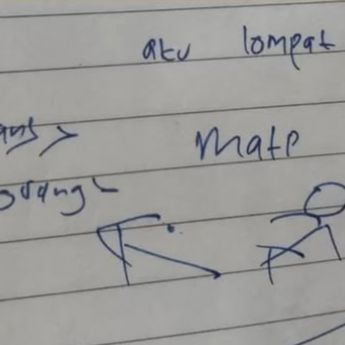 aku lompat
mate
orang